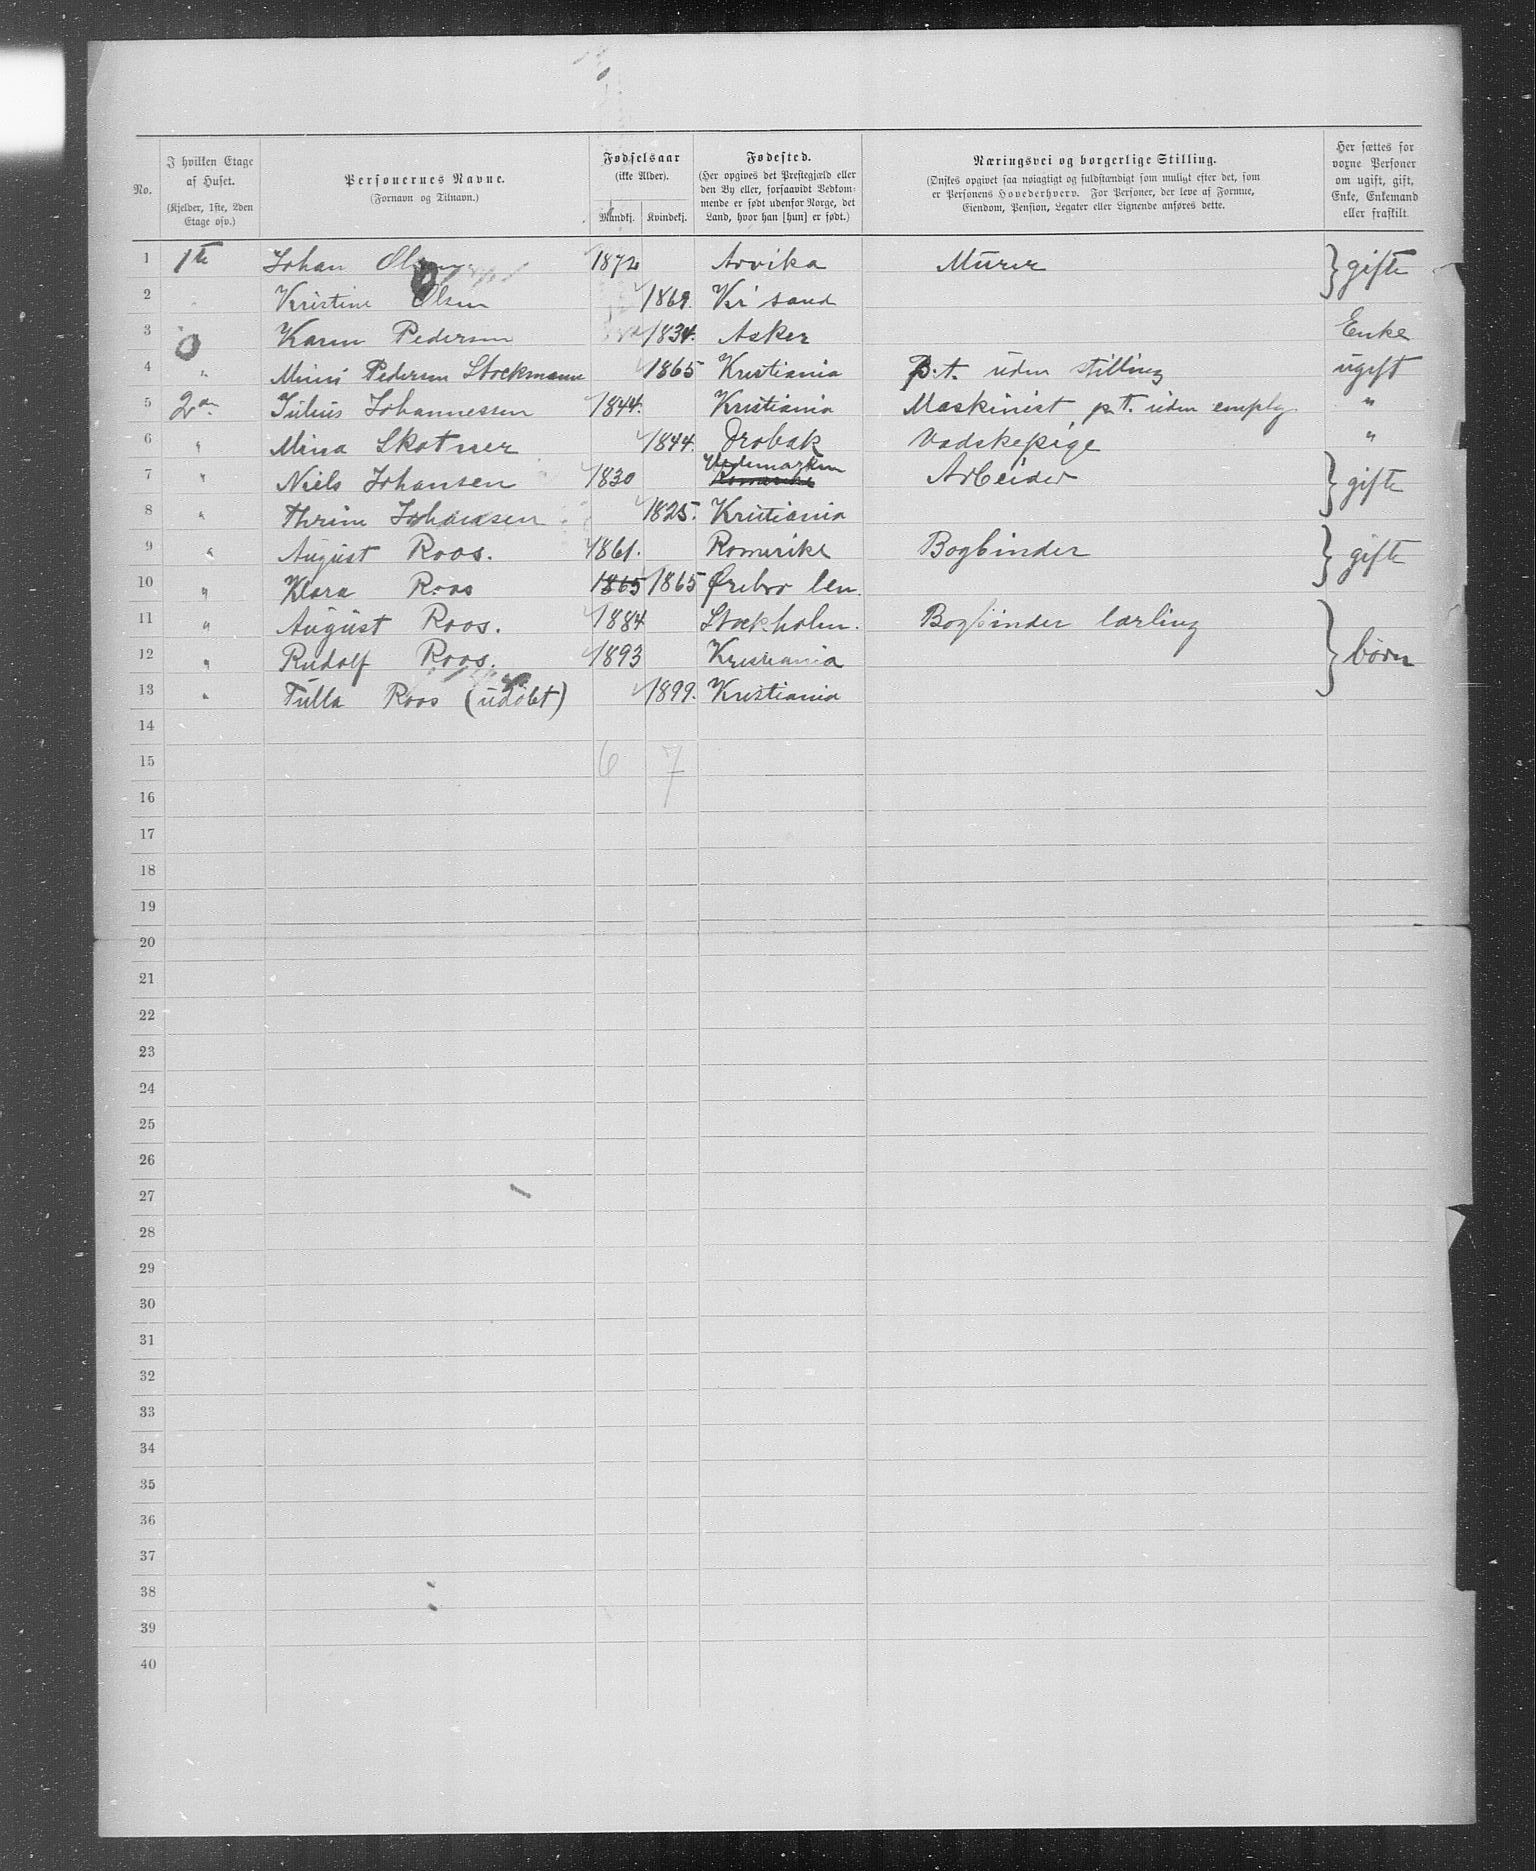 No.
I hvilken Etage af Huset.
(Kjelder, 1ste, 2den Etage osv.)
Personernes Navne.
(Fornavn og Tilnavn.)
Fødselsaar
(ikke Alder).
Mandkj. Kvindekj.
Fødested.
(Her opgives det Prestegjæld eller den By eller, forsaavidt Vedkommende er født udenfor Norge, det Land, hvor han [hun] er født.)
Næringsvei og borgerlige Stilling.
(Ønskes opgivet saa nøiagtigt og fuldstændigt som muligt efter det, som er Personens Hovederhverv. For Personer, der leve af Formue, Eiendom, Pension, Legater eller Lignende anføres dette.
Her sættes for voxne Personer om ugift, gift, Enke, Enkemand eller fraskilt.
1 1te Johan Olsen 1872 Arvika Murer } gifte
2 Kristine Olsen 1869. Kr'sand
3 Karen Pedersen 1834. Asker Enke
4 " Pedersen Stockmann 1865 Kristiania p.t. uden stilling ugift
5 2den Julius Johannessen 1844. Kristiania Maskinist p.t. uden "
6 " Mina Skotner 1844. Drøbak Vadskepige "
7 " Niels Johansen 1830 Hedemarken Romerike Arbeider } gifte
8 " Thrine Johansen 1825. Kristiania
9 " August Roos. 1861. Romerike Bogbinder } gifte
10 " Klara Roos 1865 1865 Ørebro len.
11 " August Roos. 1884 Stockholm. Bogbinder lærling } børn
12 " Rudolf Roos. 1893 Kristiania
13 " Tulla Roos (udøbt) 1899. Kristiania
14
15 6 7
16
17
18
19
20
21
22
23
24
25
26
27
28
29
30
31
32
33
34
35
36
37
38
39
40